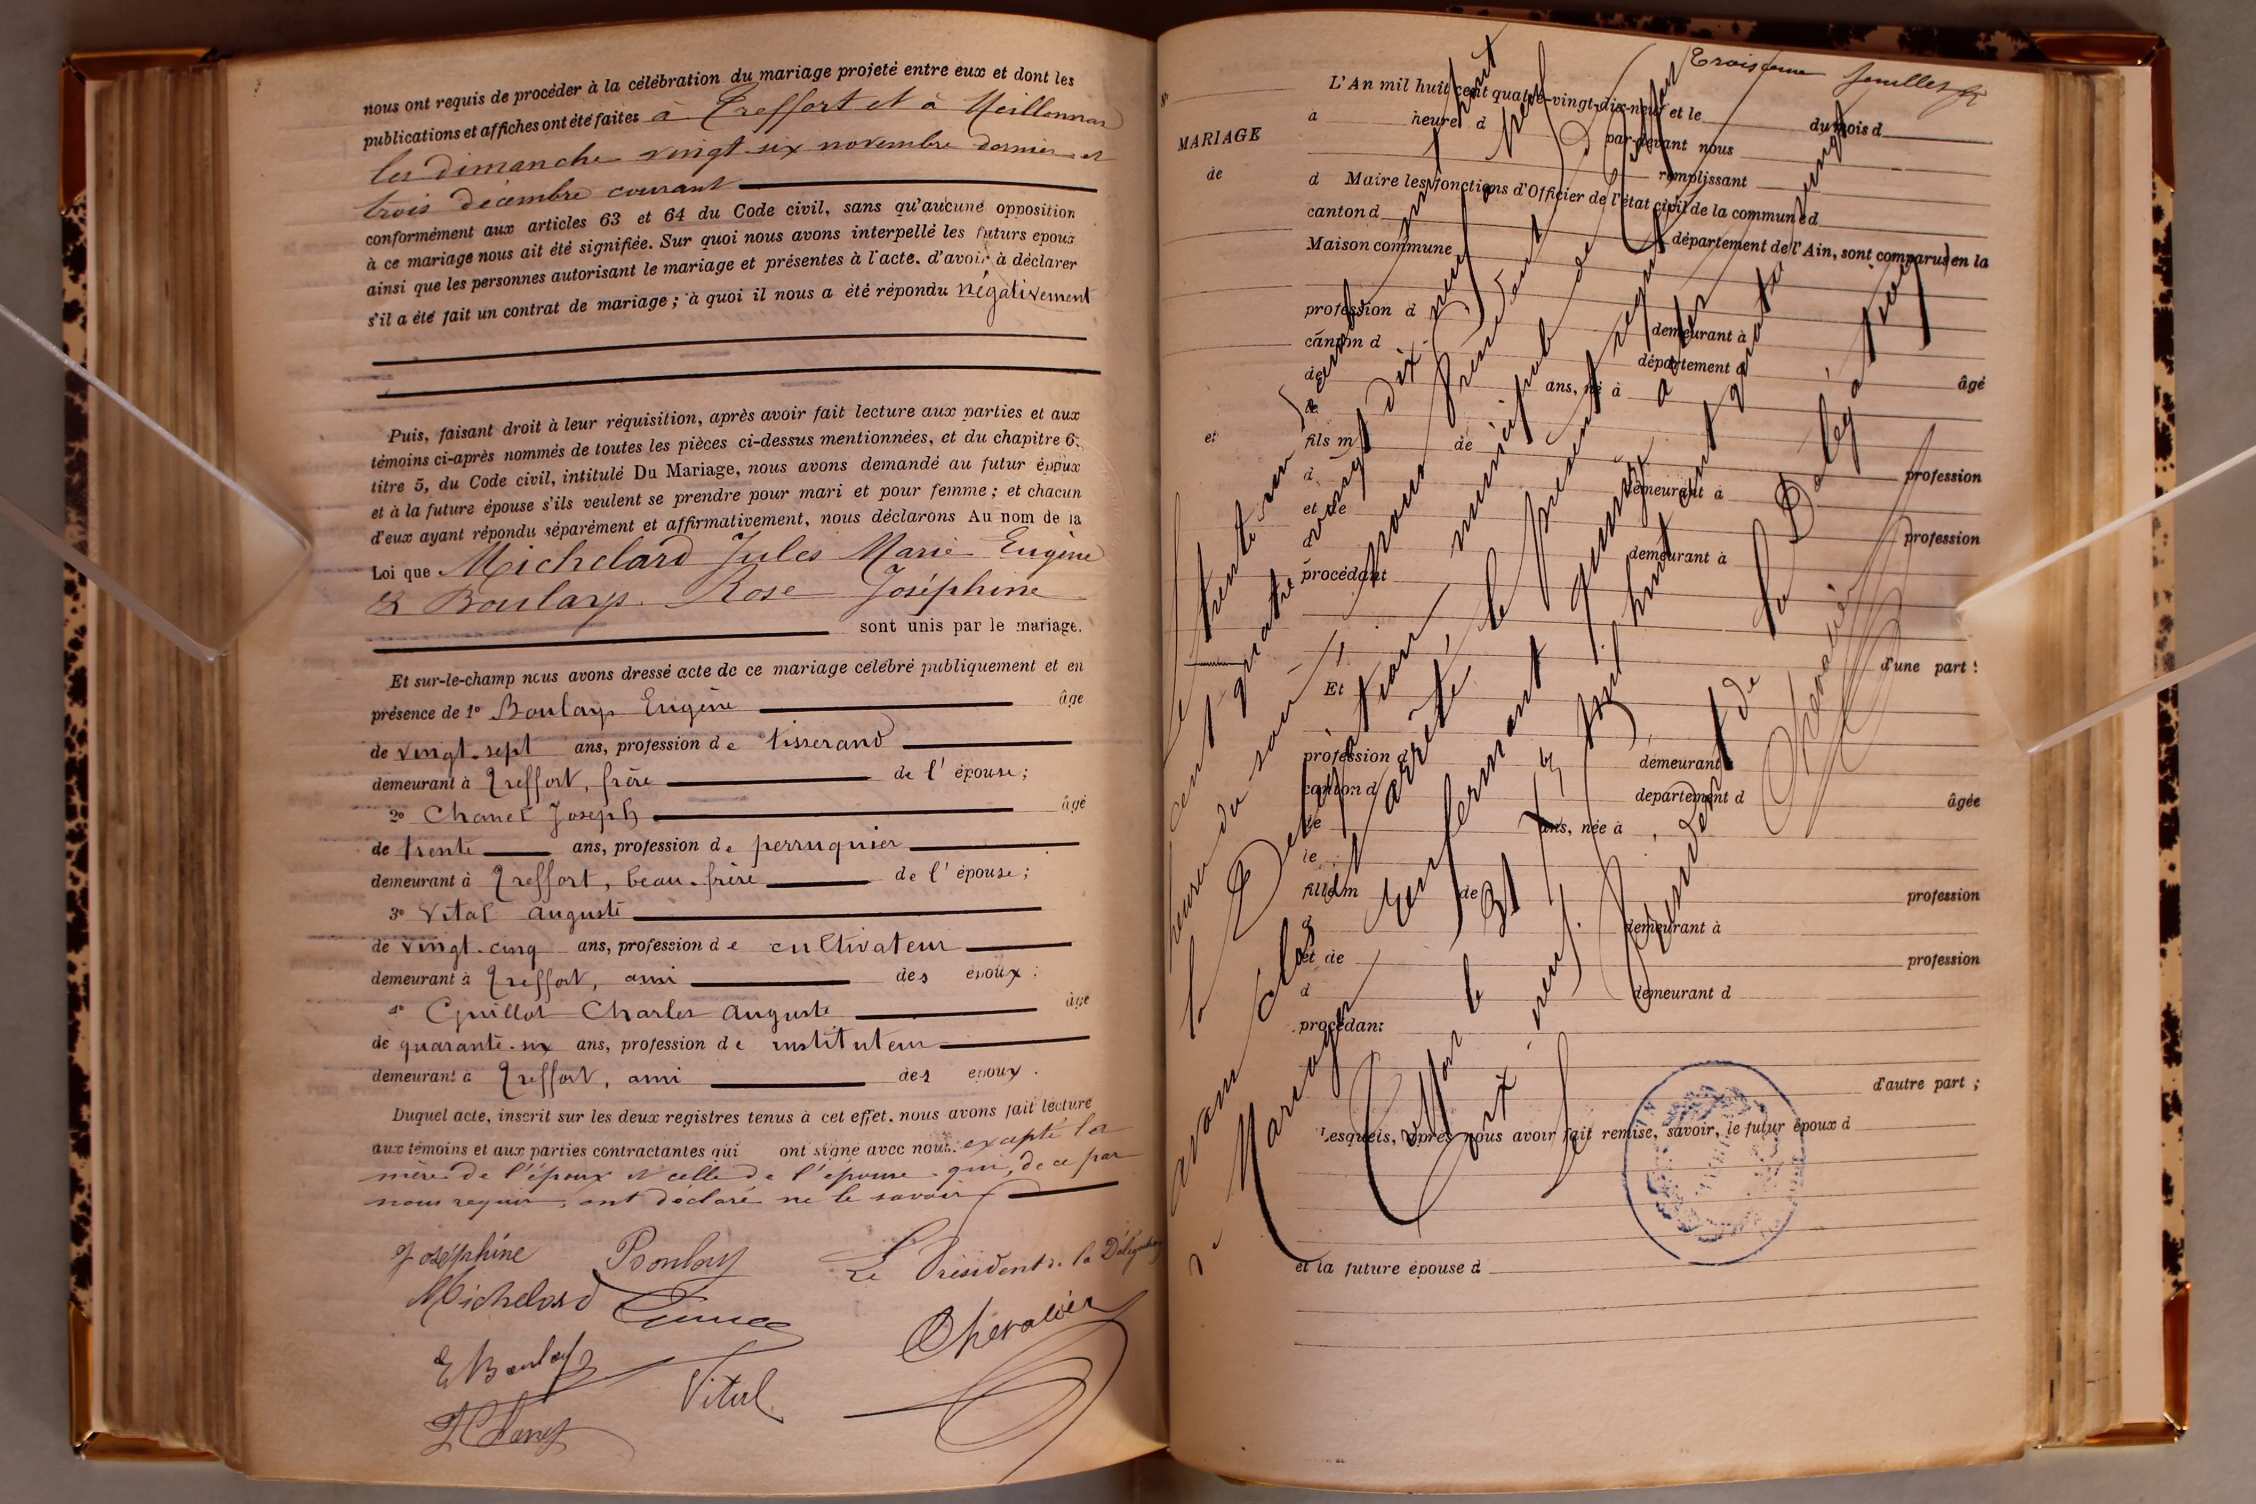 nous ont requis de procéder à la célébration du mariage projeté entre eux et dont les
publications et affiches ont été faites à Treffort et à Meillonnas
les dimanche vingt six novembre dernier et
trois décembre courant
conformément aux articles 63 et 64 du Code civil, sans qu'aucune opposition
à ce mariage nous ait été signifiée. Sur quoi nous avons interpellé les futurs époux
ainsi que les personnes autorisant le mariage et présentes à l'acte, d'avoir à déclarer
s'il a été fait un contrat de mariage ; à quoi il nous a été répondu négativement
Puis, faisant droit à leur réquisition, après avoir fait lecture aux parties et aux
témoins ci-après nommés de toutes les pièces ci-dessus mentionnées, et du chapitre 6,
titre 5, du Code civil, intitulé Du Mariage, nous avons demandé au futur époux
et à la future épouse s'ils veulent se prendre pour mari et pour femme ; et chacun
d'eux ayant répondu séparément et affirmativement, nous déclarons Au nom de la
Loi que Michelard Jules Marie Eugène
& Boulay Rose Joséphine
sont unis par le mariage.
Et sur-le-champ nous avons dressé acte de ce mariage célébré publiquement et en
présence de 1º Boulay Eugène âgé
de vingt-sept ans, profession de tisserand
demeurant à Treffort, frère de l'épouse ;
2º Chanel Joseph âgé
de trente ans, profession de perruquier
demeurant à Treffort, beau-frère de l'épouse ;
3º Vital Auguste
de vingt-cinq ans, profession de cultivateur
demeurant à Treffort, ami des époux ;
4º Guillot Charles Auguste âgé
de quarante-six ans, profession de instituteur
demeurant à Treffort, ami des époux.
Duquel acte, inscrit sur les deux registres tenus à cet effet, nous avons fait lecture
aux témoins et aux parties contractantes qui ont signé avec nous, excepté la
mère de l'époux et celle de l'épouse qui, de ce par
nous requis, ont déclaré ne le savoir
Joséphine Boulay Le Président de la Délégation
Michelard
E Boulay Vital Chevalier
J Chanel
Troisième feuillet
L'An mil huit cent quatre-vingt-dix-neuf et le du mois d
à heure d par-devant nous
MARIAGE
remplissant
de
d Maire les fonctions d'Officier de l'état civil de la commune d
canton d département de l'Ain, sont comparus en la
Maison commune
profession d demeurant à
canton d département d âgé
de ans, né à
le
et
fils m de profession
d demeurant à
et de profession
d demeurant à
procédant
d'une part ;
Et
profession d demeurant à
canton d département d âgée
de ans, née à
le
fille m de profession
d demeurant à
et de profession
d demeurant d
procédant
d'autre part ;
Lesquels, après nous avoir fait remise, savoir, le futur époux d
et la future épouse d
Le trente et un décembre mil huit
cent quatre vingt dix-neuf à neuf
heures du soir, nous Président de
la Délégation municipale de Treffort
avons clos et arrêté le présent registre
de Mariages renfermant quinze actes
Treffort le 31 Xbre mil huit cent quatre vingt
dix-neuf.
Le Président de la Délégation
Chevalier